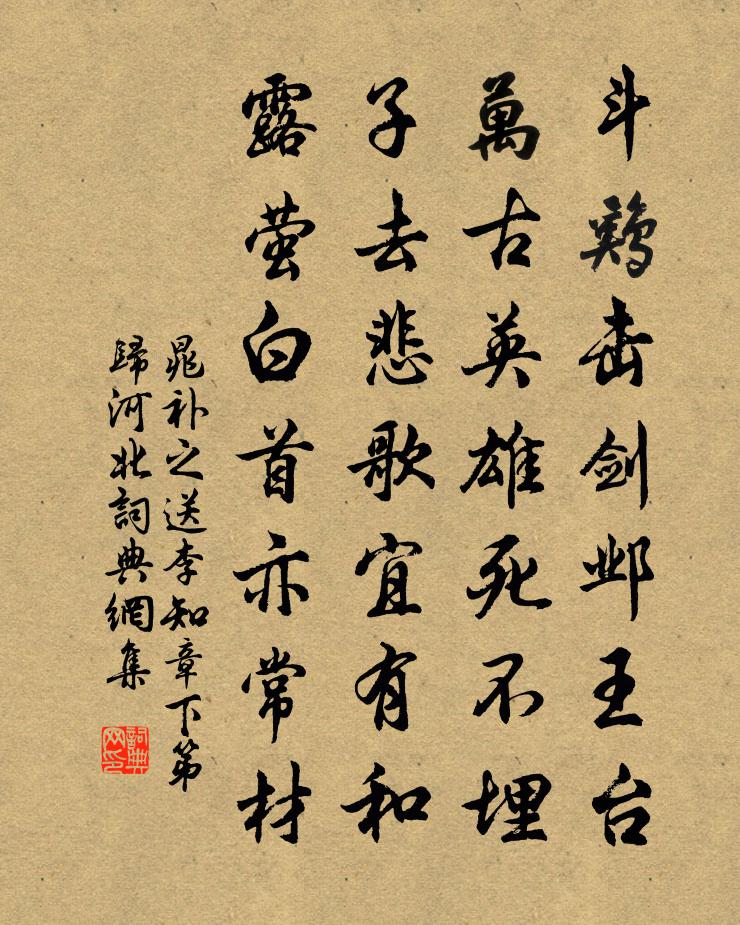 斗鷄击剑邺王台
萬古英雄死不埋
子去悲歌宜有和
露萤白首亦常材
晁补之送李知章下第
歸河北詞典網集
詞典网印